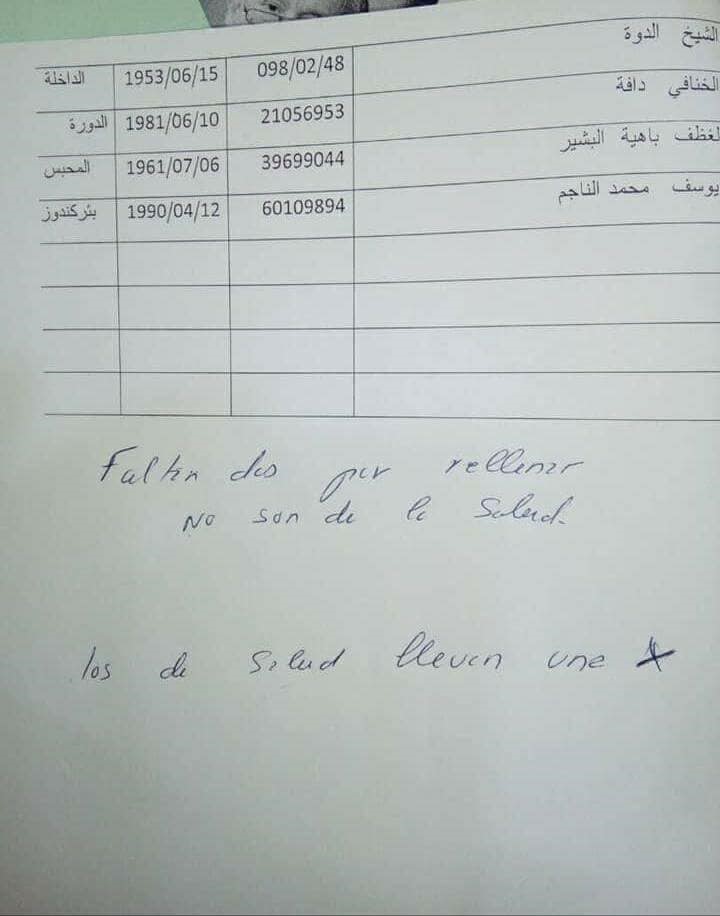 الشيخ الدوة 098/02/48 1953/06/15 الداخلة
الخنافي دافة 21056953 1981/06/10 الدورة
لغظف باهية البشير 39699044 1961/07/06 المحبس
يوسف محمد الناجم 60109894 1990/04/12 بئركندوز
Faltan dos por rellenar
No son de la Salud.
los de Salud lleven una